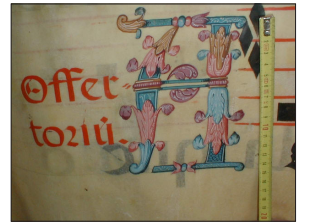 Offer-
toriũ.